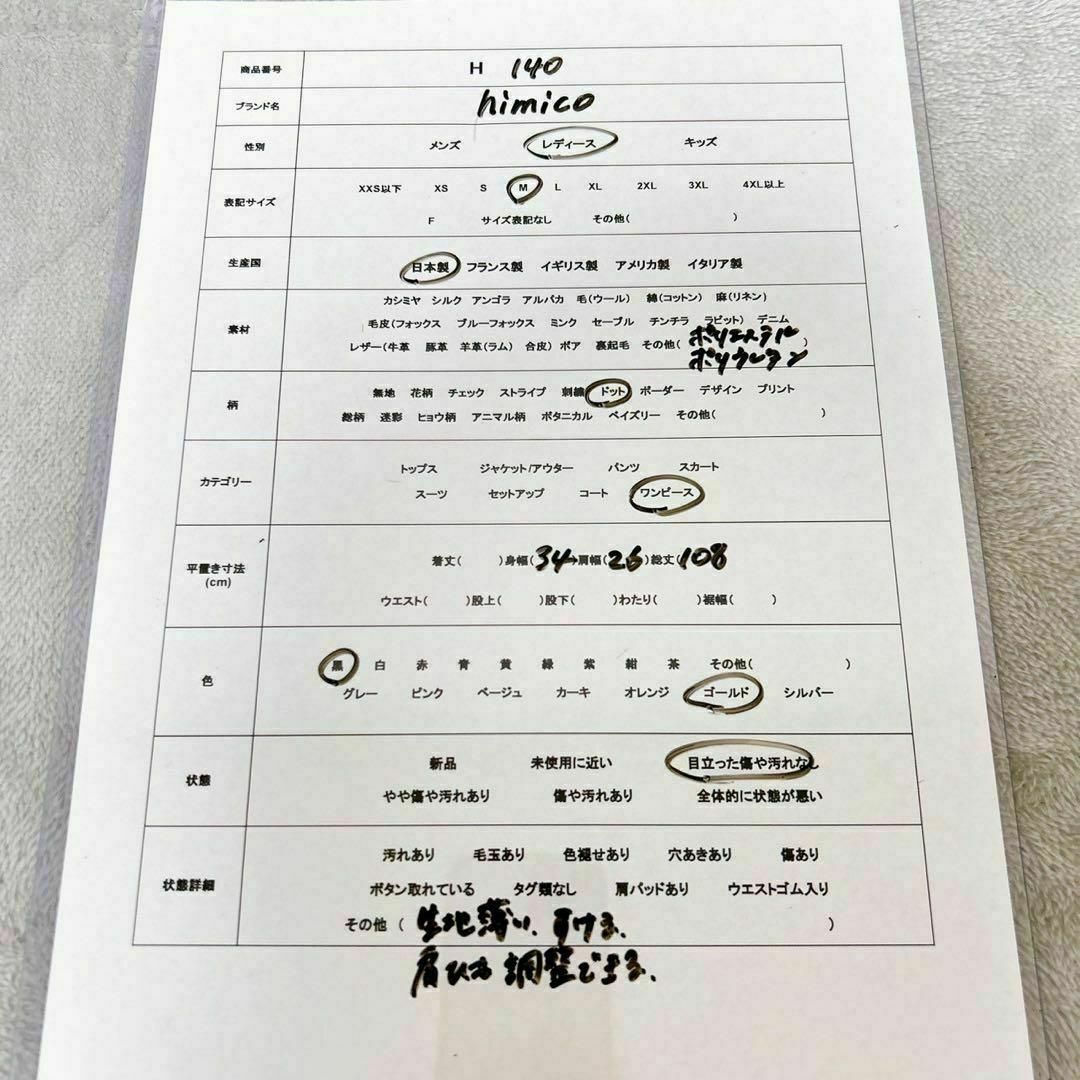 商品番号 H 140
ブランド名 himico
性別 メンズ レディース キッズ
表記サイズ XXS以下 XS S M L XL 2XL 3XL 4XL以上
F サイズ表記なし その他( )
生産国 日本製 フランス製 イギリス製 アメリカ製 イタリア製
素材 カシミヤ シルク アンゴラ アルパカ 毛(ウール) 綿(コットン) 麻(リネン)
毛皮(フォックス ブルーフォックス ミンク セーブル チンチラ ラビット) デニム
レザー(牛革 豚革 羊革(ラム) 合皮) ボア 裏起毛 その他( ポリエステル )
ポリウレタン
柄 無地 花柄 チェック ストライプ 刺繍 ドット ボーダー デザイン プリント
総柄 迷彩 ヒョウ柄 アニマル柄 ボタニカル ペイズリー その他( )
カテゴリー トップス ジャケット/アウター パンツ スカート
スーツ セットアップ コート ワンピース
平置き寸法 着丈( )身幅( 34→肩幅( 26 )総丈( 108
(cm) ウエスト( )股上( )股下( )わたり( )裾幅( )
色 黒 白 赤 青 黄 緑 紫 紺 茶 その他( )
グレー ピンク ベージュ カーキ オレンジ ゴールド シルバー
状態 新品 未使用に近い 目立った傷や汚れなし
やや傷や汚れあり 傷や汚れあり 全体的に状態が悪い
状態詳細 汚れあり 毛玉あり 色褪せあり 穴あきあり 傷あり
ボタン取れている タグ類なし 肩パッドあり ウエストゴム入り
その他 ( 生地薄い、すける、 )
肩ひも調整できる、